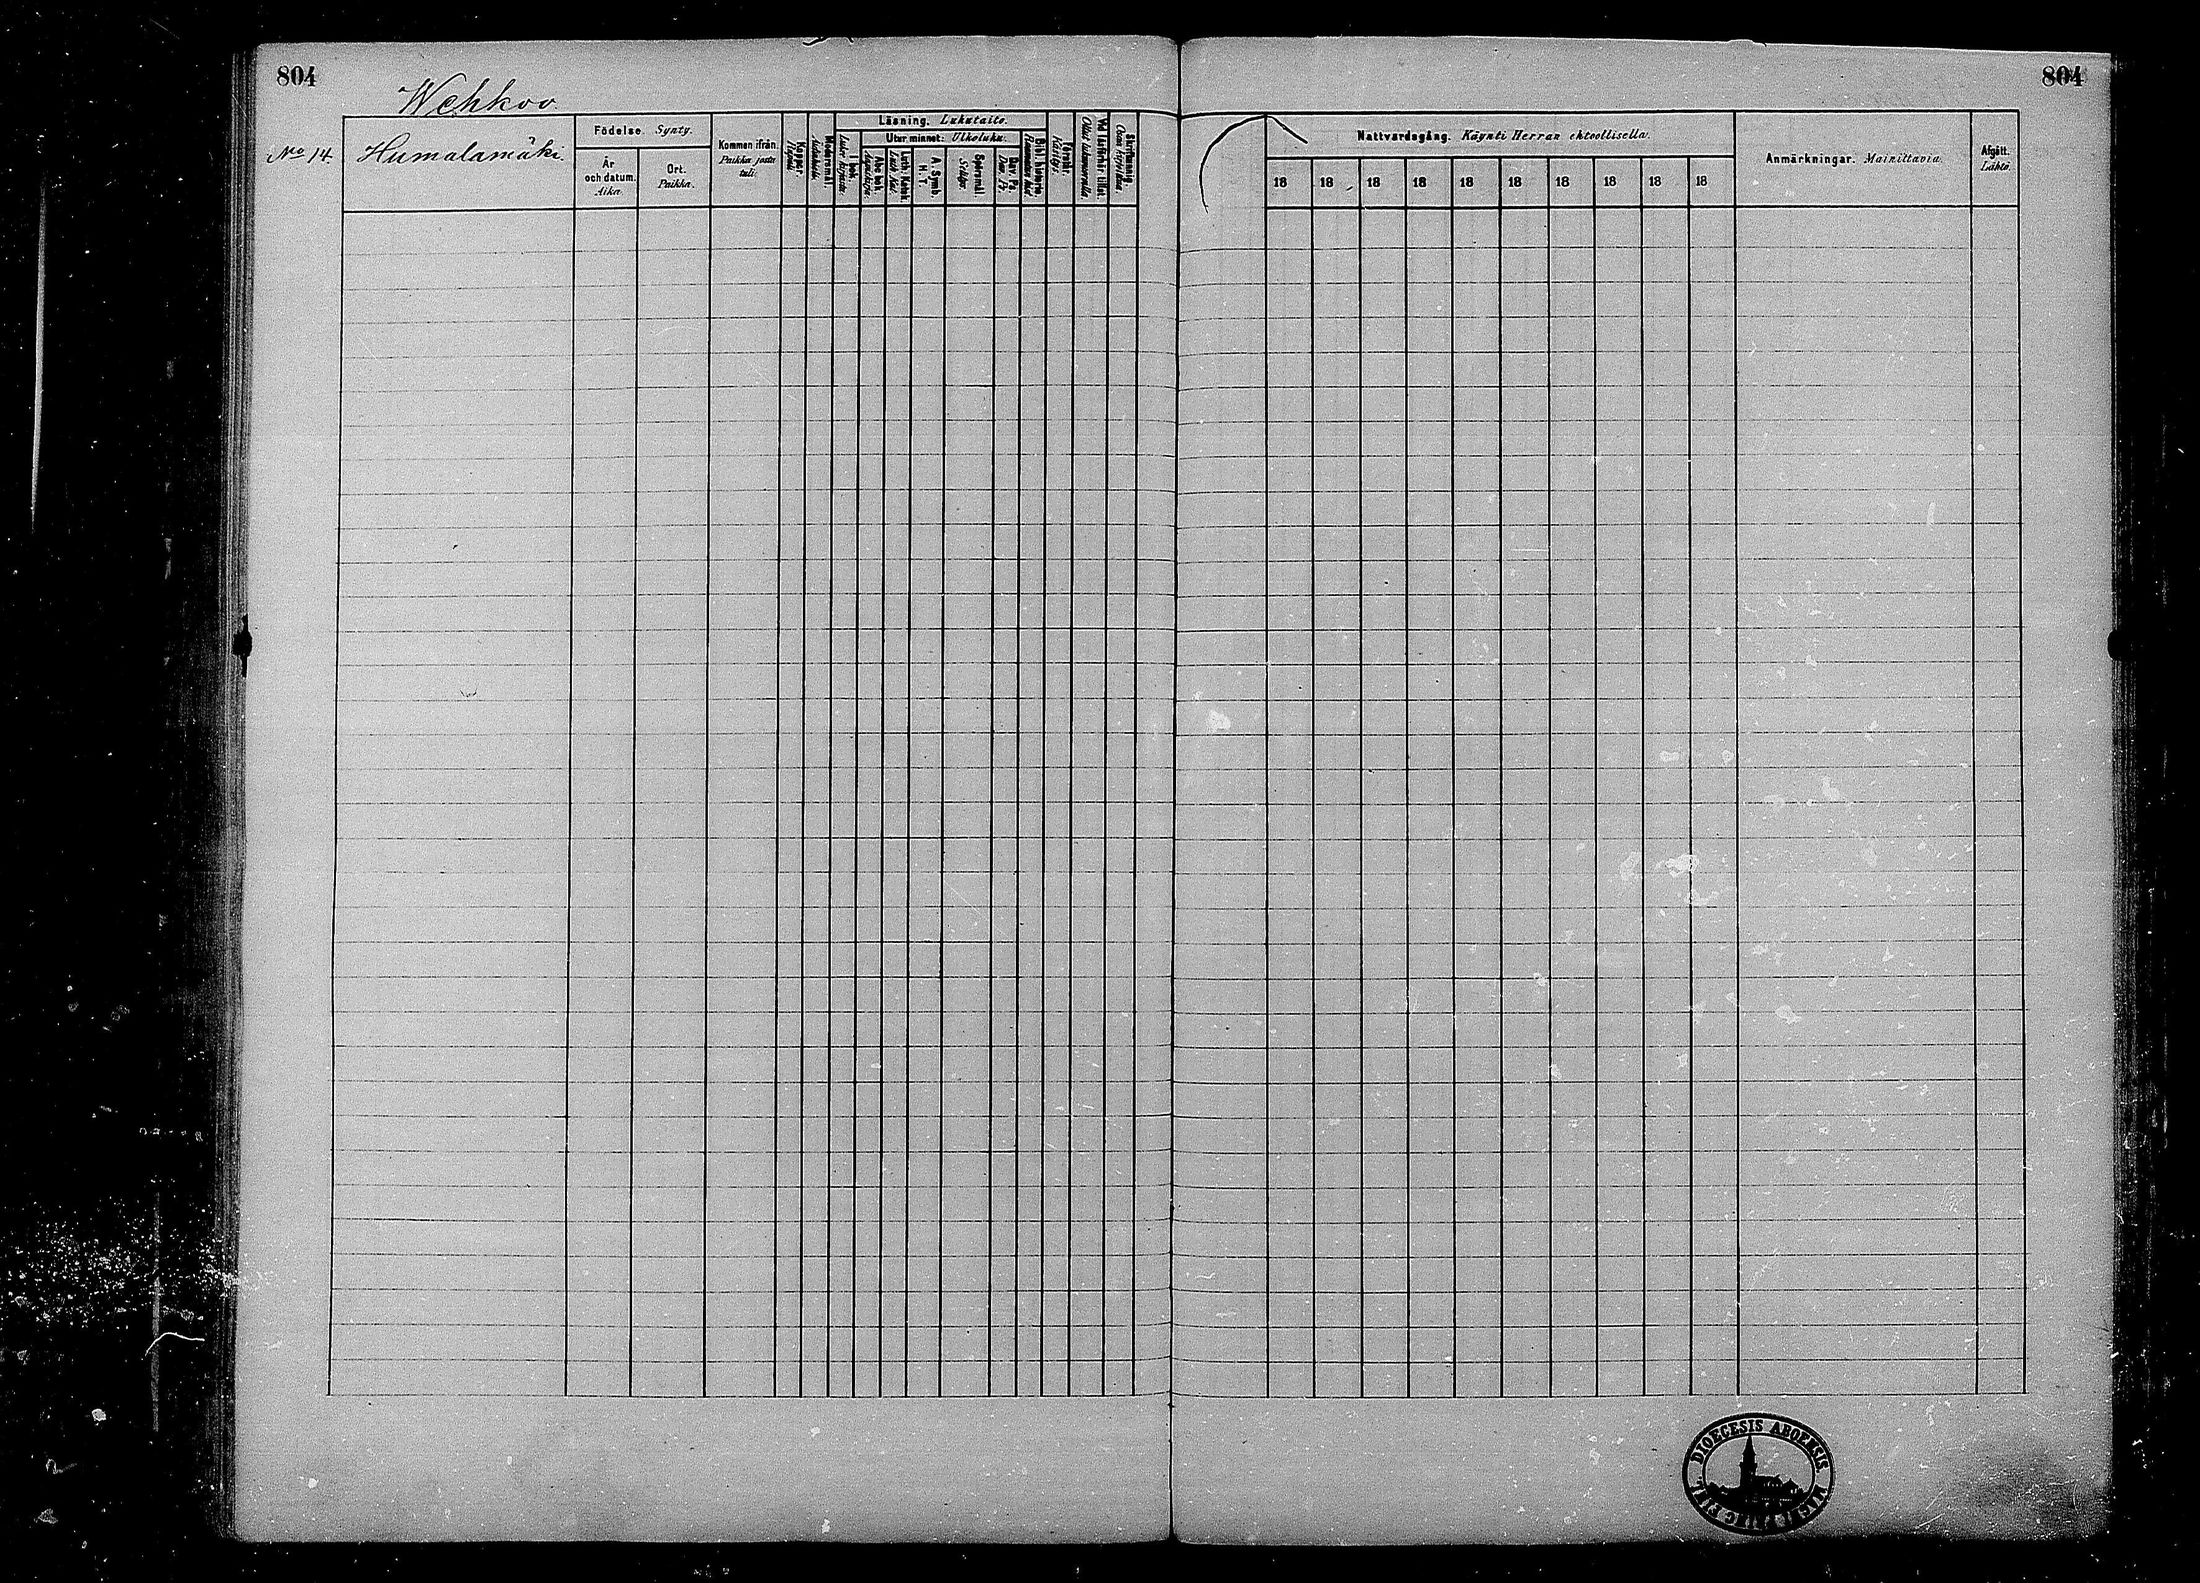 804
804
Wehkoo.
No 14. Humalamäki.
Födelse. Synty.
År och datum. Aika.
Ort. Paikka.
Kommen ifrån. Paikka josta tuli.
Koppor. Rupuli
Modersmål.
Läsning. Lukutaito.
I bok.
Utur minnet: Ulkoluku.
Abc bok.
Luth. Katek. Luth. Kat.
A. Symb. H. T.
Spörsmål. Selitys
Dav. Ps. Dav. Ps.
Bibl. historia.
Förstår. Käsitys.
Vid läsförhör tillst.
Skriftning.
Nattvardsgång. Käynti Herran ehtoollisella.
18 18 18 18 18 18 18 18 18 18
Anmärkningar. Mainittavia.
Afgått. Lähtö.
DIOECESIS ABOENSIS